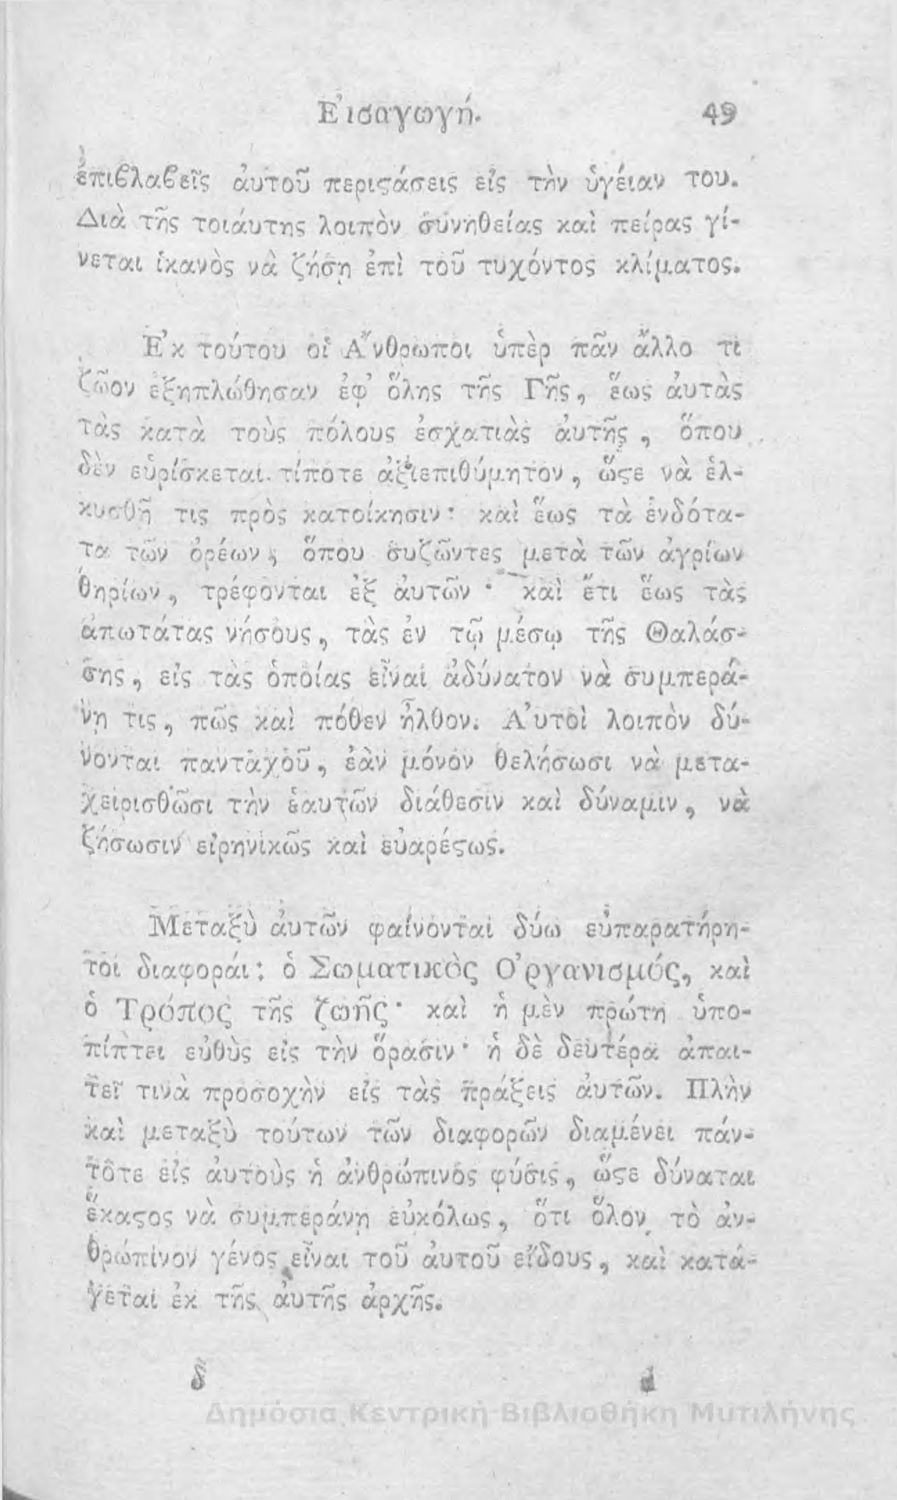 Εἰσαγωγή. 49
ἐπιβλαβεῖς ἀυτοῦ περιςάσεις εἰς τὴν ὑγείαν του.
Διὰ τῆς τοιάυτης λοιπὸν συνηθείας καὶ πείρας γί-
νεται ἱκανὸς νὰ ζήσῃ ἐπὶ τοῦ τυχόντος κλίματος.
Ἐκ τούτου οἱ Ἄνθρωποι ὑπὲρ πᾶν ἄλλο τι
ζῶον ἐξηπλώθησαν ἐφ' ὅλης τῆς Γῆς, ἕως ἀυτὰς
τὰς κατὰ τοὺς πόλους ἐσχατιὰς ἀυτῆς, ὅπου
δὲν εὑρίσκεται τίποτε ἀξιεπιθύμητον, ὥςε νὰ ἑλ-
κυσθῇ τις πρὸς κατοίκησιν· καὶ ἕως τὰ ἐνδότα-
τα τῶν ὀρέων, ὅπου συζῶντες μετὰ τῶν ἀγρίων
θηρίων, τρέφονται ἐξ ἀυτῶν· καὶ ἔτι ἕως τὰς
ἀπωτάτας νήσους, τὰς ἐν τῷ μέσῳ τῆς Θαλάσ-
σης, εἰς τὰς ὁποίας εἶναι ἀδύνατον νὰ συμπερά-
νῃ τις, πῶς καὶ πόθεν ἦλθον. Ἀυτοὶ λοιπὸν δύ-
νονται πανταχοῦ, ἐὰν μόνον θελήσωσι νὰ μετα-
χειρισθῶσι τὴν ἑαυτῶν διάθεσιν καὶ δύναμιν, νὰ
ζήσωσιν εἰρηνικῶς καὶ εὐαρέςως.
Μεταξὺ ἀυτῶν φαίνονται δύω εὐπαρατήρη-
τοι διαφοράι; ὁ Σωματικὸς Ὀργανισμός, καὶ
ὁ Τρόπος τῆς ζωῆς· καὶ ἡ μὲν πρώτη ὑπο-
πίπτει εὐθὺς εἰς τὴν ὅρασιν· ἡ δὲ δευτέρα ἀπαι-
τεῖ τινὰ προσοχὴν εἰς τὰς πράξεις ἀυτῶν. Πλὴν
καὶ μεταξὺ τούτων τῶν διαφορῶν διαμένει πάν-
τοτε εἰς ἀυτοὺς ἡ ἀνθρώπινος φύσις, ὥςε δύναται
ἕκαςος νὰ συμπεράνῃ εὐκόλως, ὅτι ὅλον τὸ ἀν-
θρώπινον γένος εἶναι τοῦ ἀυτοῦ εἴδους, καὶ κατά-
γεται ἐκ τῆς ἀυτῆς ἀρχῆς.
δ d
Δημόσια Κεντρική Βιβλιοθήκη Μυτιλήνης